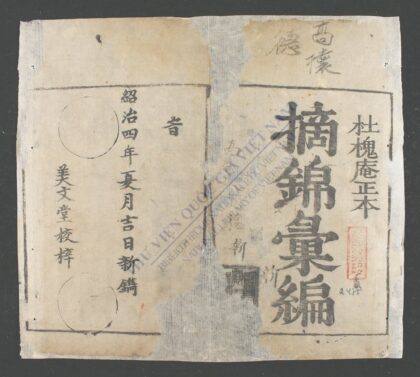 高懷德
杜槐庵正本
摘錦彙編
新
音
紹治四年夏月吉日新鐫
美文堂校梓
THƯ VIỆN QUỐC GIA VIỆT NAM
NATIONAL LIBRARY OF VIETNAM